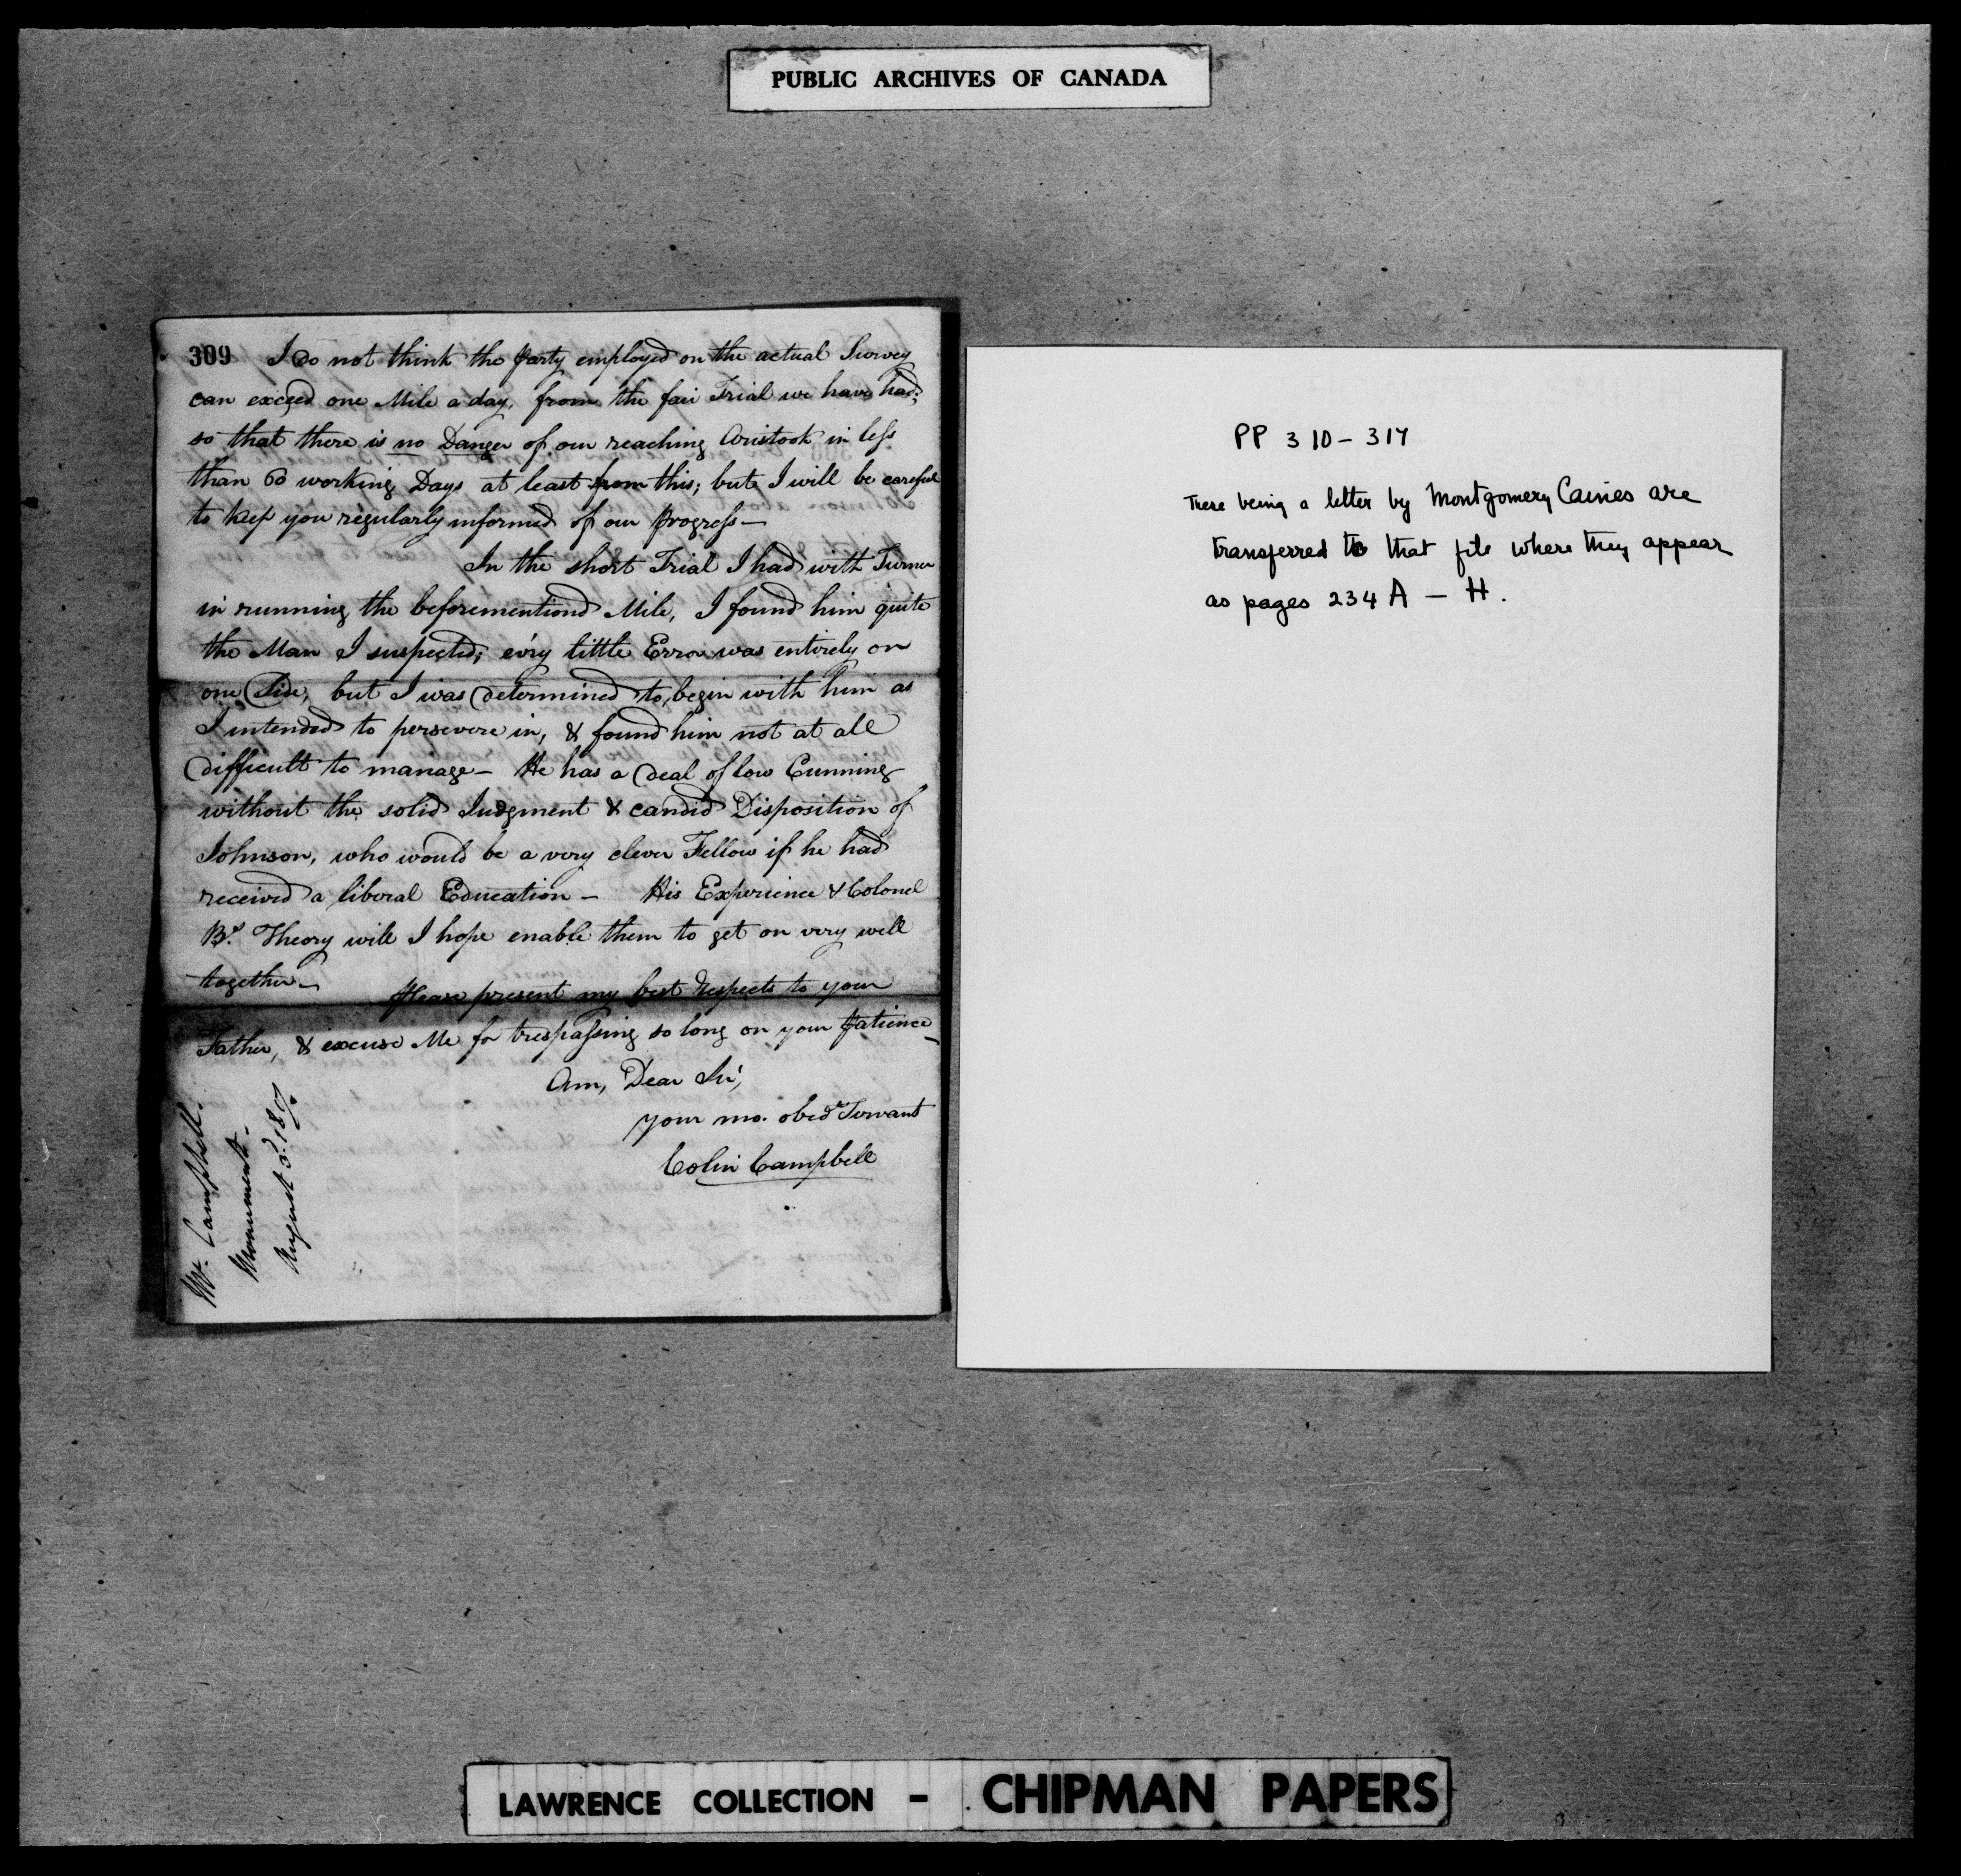 PUBLIC ARCHIVES OF CANADA
309 I do not think the Party employed on the actual Survey
can exceed one Mile a day, from the fair Trial we have had;
so that there is no Danger of our reaching Aristook in less
than 60 working Days at least from this; but I will be careful
to keep you regularly informed of our Progress—
In the short Trial I had with Turner
in running the beforementiond Mile, I found him quite
the Man I suspected; ev'ry little Error was entirely on
one Side, but I was determined to begin with him as
I intended to persevere in, & found him not at all
difficult to manage— He has a deal of low Cunning
without the solid Judgment & candid Disposition of
Johnson, who would be a very clever Fellow if he had
received a liberal Education— His Experience & Colonel
B's. Theory will I hope enable them to get on very well
together—
Please present my best Respects to your
Father, & excuse Me for trespassing so long on your Patience—
Am, Dear Sir,
your mo. obedt Servant
Colin Campbell
Mr. Campbell.
Monument.
August 3d. 1817.
PP 310-317
These being a letter by Montgomery Cairnes are
transferred to that file where they appear
as pages 234 A — H.
LAWRENCE COLLECTION - CHIPMAN PAPERS